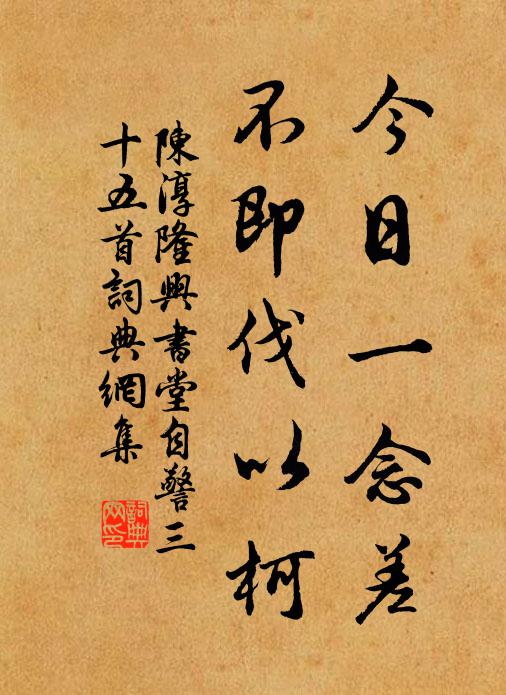 今日一念差
不即伐以柯
陳淳隆興書堂自警三
十五首詞典網集
詞典
网印